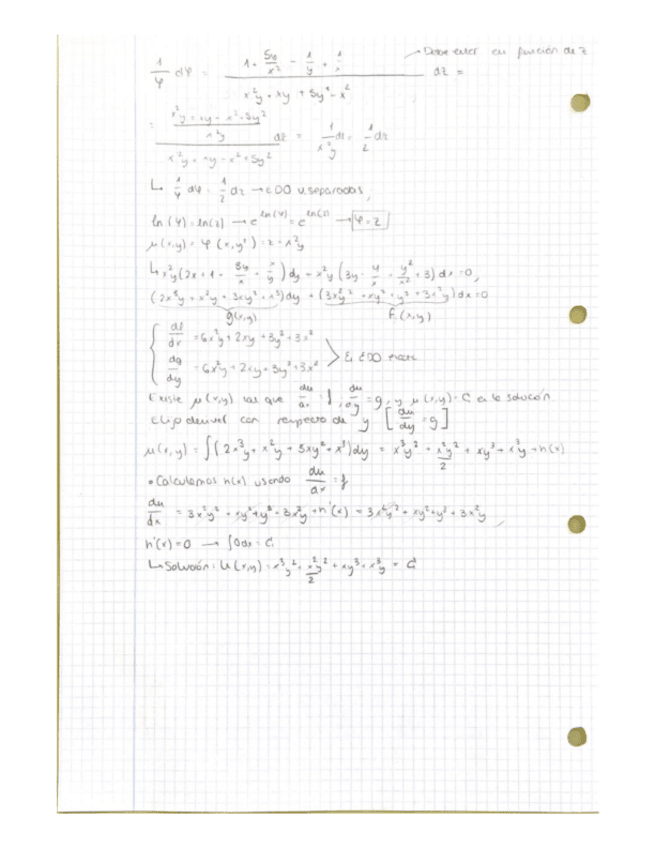 → Debe estar en función de z
1/φ dφ = (1 + 5y/x² - 1/y + 1/x) / (x²y + xy + 5y² - x²) dz =
= ((x²y + xy - x² + 5y²) / x²y) / (x²y + xy - x² + 5y²) dz = 1/x²y dz = 1/z dz
↳ 1/φ dφ = 1/z dz → EDO v. separadas,
ln(φ) = ln(z) → e^ln(φ) = e^ln(z) → φ = z
μ(x,y) = φ(x,y²) = z = x²y
(2x³y + x²y + 3xy² + x³)dy + (3x²y² + xy² + y³ + 3x²y)dx = 0
g(x,y) f(x,y)
df/dx = 6x²y + 2xy + 3y² + 3x²
dg/dy = 6x²y + 2xy + 3y² + 3x² > Es EDO exacta
Existe μ(x,y) tal que du/dx = f, du/dy = g, y μ(x,y) = C es la solución.
Elijo derivar con respecto de y [du/dy = g]
μ(x,y) = ∫(2x³y + x²y + 3xy² + x³)dy = x³y² + x²y²/2 + xy³ + x³y + h(x)
• Calculamos h(x) usando du/dx = f
du/dx = 3x²y² + xy² + y³ + 3x²y + h'(x) = 3x²y² + xy² + y³ + 3x²y
h'(x) = 0 → ∫0dx = C
↳ Solución: u(x,y) = x³y² + x²y²/2 + xy³ + x³y = C